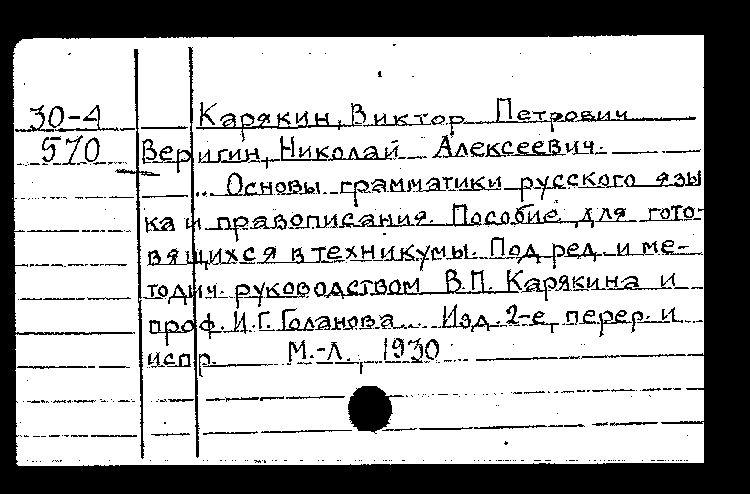 30-4 Карякин, Виктор Петрович
570 Веригин, Николай Алексеевич.
... Основы грамматики русского язы
ка и правописания. Пособие для гото-
вящихся в техникумы. Под ред. и ме-
тодич. руководством В.П. Карякина и
проф. И.Г. Голанова... Изд. 2-е, перер. и
испр. М.-Л., 1930